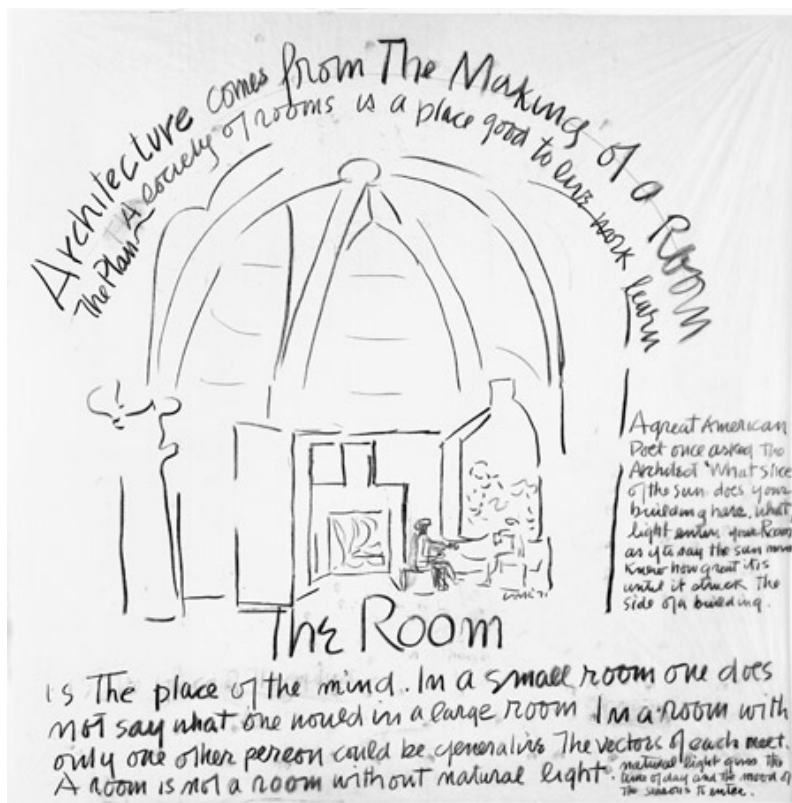 Architecture comes from The Making of a Room
The Plan ~ A society of rooms is a place good to live work learn
A great American
Poet once asked The
Architect "What slice
of the sun does your
building have, what
light enters your Room
as if to say the sun never
knew how great it is
until it struck The
side of a building.
The Room
is The place of the mind. In a small room one does
not say what one would in a large room In a room with
only one other person could be generative The vectors of each meet.
A room is not a room without natural light. natural light gives The
time of day and the mood of
The seasons to enter.